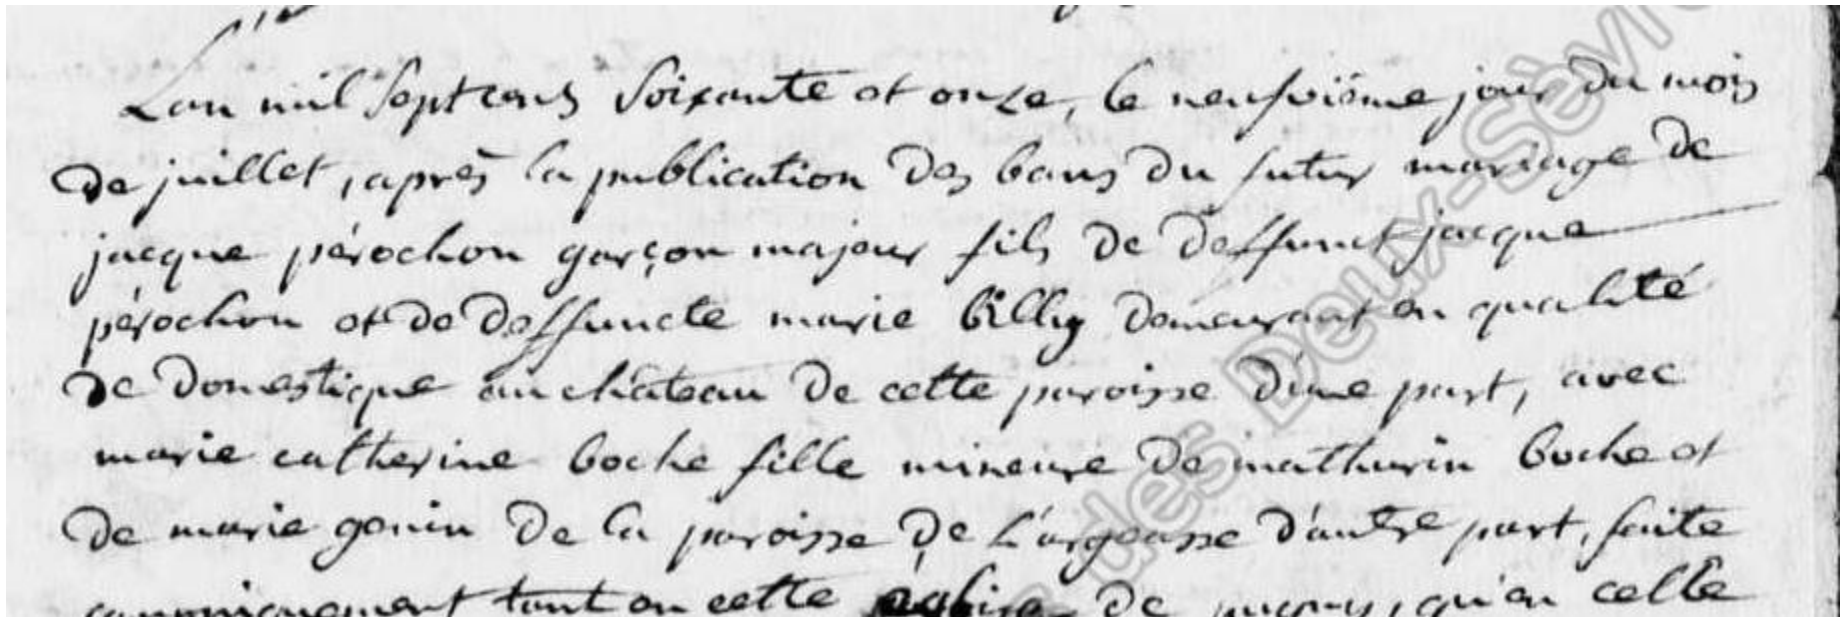 Lan mil septcens soixante et onze, le neufvième jour du mois
de juillet, après la publication des bans du futur mariage de
jacque pérochon garçon majeur fils de deffunct jacque
pérochon et de deffuncte marie billy demeurant en qualité
de domestique au château de cette paroisse d'une part, avec
marie catherine boche fille mineure de mathurin boche et
de marie genin de la paroisse de L'argeasse d'autre part, faite
canoniquement tant en cette église de qu'en celle
des Deux-Sèvr